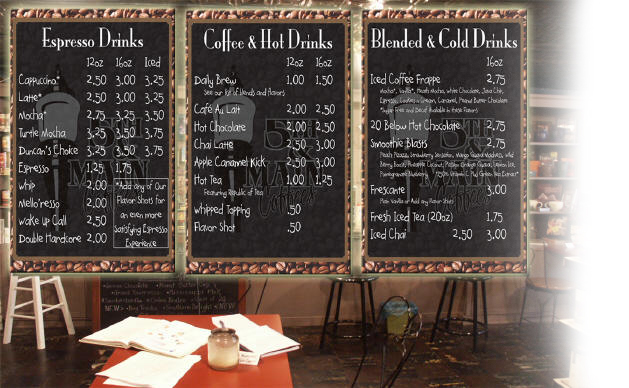 Espresso Drinks
12oz 16oz Iced
Cappuccino* 2.50 3.00 3.25
Latte* 2.50 3.00 3.25
Mocha* 2.75 3.25 3.50
Turtle Mocha 3.25 3.50 3.75
Duncan's Choice 3.25 3.50 3.75
Espresso 1.25 1.75
whip 2.00
Mello'resso 2.00
wake up Call 2.50
Double Hardcore 2.00
*Add any of Our
Flavor Shots for
an even more
Satisfying Espresso
Experience
Coffee & Hot Drinks
12oz 16oz
Daily Brew 1.00 1.50
See our list of blends and flavors
Café Au Lait 2.00 2.50
Hot Chocolate 2.00 2.50
Chai Latte 2.50 3.00
Apple Caramel Kick 2.50 3.00
Hot Tea 1.00 1.25
Featuring Republic of Tea
whipped Topping .50
Flavor Shot .50
Blended & Cold Drinks
16oz
Iced Coffee Frappe 2.75
Mocha*, Vanilla*, Peanut Mocha, white Chocolate, Java Chip,
Espresso, Cookies n Cream, Caramel, Peanut Butter Chocolate
*Sugar Free and Decaf Available in these Flavors
20 Below Hot Chocolate 2.75
Smoothie Blasts 2.75
Peach Strawberry Mango wild
Berry Pineapple Coconut
Pomegranate Blueberry
Frescante 3.00
Plain Vanilla or Add any Flavor Shot
Fresh Iced Tea (20oz) 1.75
Iced Chai 2.50 3.00
5TH
MAIN
Coffee